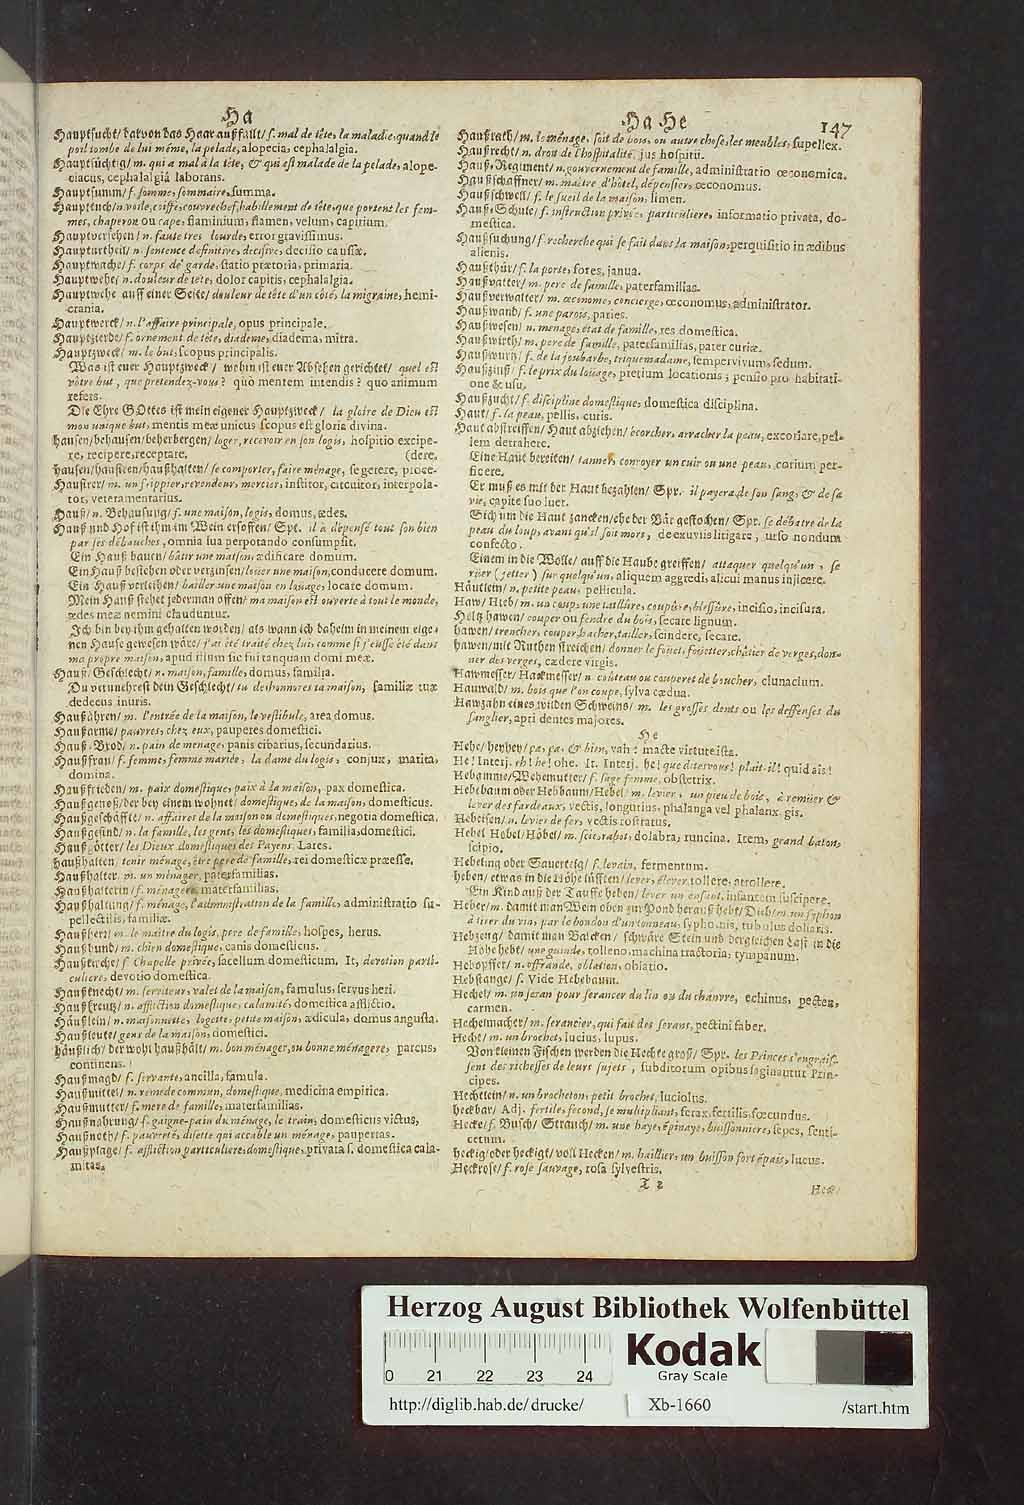 Ha
Hauptsucht/ darvon das Haar außfällt/ f. mal de tête, la maladie, quand le
poil tombe de lui même, la pelade, alopecia, cephalalgia.
Hauptsüchtig/ m. qui a mal à la tête, & qui est malade de la pelade, alope-
ciacus, cephalalgiâ laborans.
Hauptsumm/ f. somme, sommaire, summa.
Haupttuch/ n. voile, coiffe, couvrechef, habillement de tête, que portent les fem-
mes, chaperon ou cape, flaminium, flamen, velum, capitium.
Hauptversehen/ n. faute tres lourde, error gravissimus.
Haupturtheil/ n. sentence definitive, decisive, decisio caussæ.
Hauptwache/ f. corps de garde, statio prætoria, primaria.
Hauptwehe/ n. douleur de tête, dolor capitis, cephalalgia.
Hauptwehe auff einer Seite/ douleur de tête d'un côté, la migraine, hemi-
crania.
Hauptwerck/ n. l'affaire principale, opus principale.
Hauptzierde/ f. ornement de tête, diademe, diadema, mitra.
Hauptzweck/ m. le but, scopus principalis.
Was ist euer Hauptzweck/ wohin ist euer Absehen gerichtet/ quel est
vôtre but, que pretendez-vous? quò mentem intendis? quo animum
refers.
Die Ehre GOttes ist mein eigener Hauptzweck/ la gloire de Dieu est
mon unique but, mentis meæ unicus scopus est gloria divina.
hausen/ behausen/ beherbergen/ loger, recevoir en son logis, hospitio excipe-
re, recipere, receptare. (dere.
hausen/ haustren/ haußhalten/ se comporter, faire ménage, se gerere, proce-
Hausirer/ m. un frippier, revendeur, mercier, institor, circuitor, interpola-
tor, veteramentarius.
Hauß/ n. Behausung/ f. une maison, logis, domus, ædes.
Hauß und Hof ist ihm im Wein ersoffen/ Spr. il a depensé tout son bien
par ses débauches, omnia sua perpotando consumpsit.
Ein Hauß bauen/ bâtir une maison, ædificare domum.
Ein Hauß bestehen oder verzinsen/ louer une maison, conducere domum.
Ein Hauß verleihen/ bailler une maison en louage, locare domum.
Mein Hauß stehet jederman offen/ ma maison est ouverte à tout le monde,
ædes meæ nemini clauduntur.
Ich bin bey ihm gehalten worden/ als wann ich daheim in meinem eige-
nen Hause gewesen wäre/ j'ai été traité chez lui, comme si j'eusse été dans
ma propre maison, apud illum sic fui tanquam domi meæ.
Hauß/ Geschlecht/ n. maison, famille, domus, familia.
Du verunehrest dein Geschlecht/ tu deshonnores ta maison, familiæ tuæ
dedecus inuris.
Haußähren/ m. l'entrée de la maison, le vestibule, area domus.
Haußarme/ pauvres, chez eux, pauperes domestici.
Hauß-Brod/ n. pain de menage, panis cibarius, secundarius.
Haußfrau/ f. femme, femme mariée, la dame du logis, conjux, marita,
domina.
Haußfrieden/ m. paix domestique, paix à la maison, pax domestica.
Haußgenoß/ der bey einem wohnet/ domestique, de la maison, domesticus.
Haußgeschäffte/ n. affaires de la maison ou domestiques, negotia domestica.
Haußgesind/ n. la famille, les gens, les domestiques, familia, domestici.
Hauß-Götter/ les Dieux domestiques des Payens, Lares.
haußhalten/ tenir ménage, être pere de famille, rei domesticæ præesse.
Haußhalter/ m. un ménager, paterfamilias.
Haußhalterin/ f. ménagere, materfamilias.
Haußhaltung/ f. ménage, l'administration de la famille, administratio su-
pellectilis, familiæ.
Haußherr/ m. le maître du logis, pere de famille, hospes, herus.
Haußhund/ m. chien domestique, canis domesticus.
Haußkirche/ f. Chapelle privée, sacellum domesticum. It. devotion parti-
culiere, devotio domestica.
Haußknecht/ m. serviteur, valet de la maison, famulus, servus heri.
Haußkreutz/ n. affliction domestique, calamité, domestica afflictio.
Häußlein/ n. maisonnette, logette, petite maison, ædicula, domus angusta.
Haußleute/ gens de la maison, domestici.
häußlich/ der wohl haußhält/ m. bon ménager, ou bonne ménagere, parcus,
continens.
Haußmagd/ f. servante, ancilla, famula.
Haußmittel/ n. remede commun, domestique, medicina empirica.
Haußmutter/ f. mere de famille, materfamilias.
Haußnahrung/ f. gaigne-pain du ménage, le train, domesticus victus,
Haußnoth/ f. pauvreté, disette qui accable un ménage, paupertas.
Haußplage/ f. affliction particuliere, domestique, privata s. domestica cala-
mitas.
Ha He 147
Haußrath/ m. le ménage, soit de bois, ou autre chose, les meubles, supellex.
Haußrecht/ n. droit de l'hospitalité, jus hospitii.
Hauß-Regiment/ n. gouvernement de famille, administratio œconomica.
Haußschaffner/ m. maître d'hôtel, dépensier, œconomus.
Haußschwell/ f. le sueil de la maison, limen.
Hauß-Schule/ f. instruction privée, particuliere, informatio privata, do-
mestica.
Haußsuchung/ f. recherche qui se fait dans la maison, perquisitio in ædibus
alienis.
Haußthür/ f. la porte, fores, janua.
Haußvatter/ m. pere de famille, paterfamilias.
Haußverwalter/ m. œconome, concierge, œconomus, administrator.
Haußwand/ f. une parois, paries.
Haußwesen/ n. menage, état de famille, res domestica.
Haußwirth/ m. pere de famille, paterfamilias, pater curiæ.
Haußwurtz/ f. de la joubarbe, triquemadame, sempervivum, sedum.
Haußzinß/ f. le prix du louage, pretium locationis; pensio pro habitati-
one & usu.
Haußzucht/ f. discipline domestique, domestica disciplina.
Haut/ f. la peau, pellis, cutis.
Haut abstreiffen/ Haut abziehen/ écorcher, arracher la peau, excoriare, pel-
lem detrahere.
Eine Haut bereiten/ tanner, conroyer un cuir ou une peau, corium per-
ficere.
Er muß es mit der Haut bezahlen/ Spr. il payera de son sang, & de sa
vie, capite suo luet.
Sich um die Haut zancken/ ehe der Bär gestochen/ Spr. se débatre de la
peau du loup, avant qu'il soit mors, de exuviis litigare, urso nondum
confecto.
Einem in die Wolle/ auff die Haube greiffen/ attaquer quelqu'un, se
ruer (jetter) sur quelqu'un, aliquem aggredi, alicui manus injicere.
Häutlein/ n. petite peau, pellicula.
Haw/ Hieb/ m. un coup, une taillûre, coupûre, blessûre, incisio, incisura.
Holtz hawen/ couper ou fendre du bois, secare lignum.
hawen/ trencher, couper, hacher, tailler, scindere, secare.
hawen/ mit Ruthen streichen/ donner le foüet, foüetter, châtier de verges, don-
ner des verges, cædere virgis.
Hawmesser/ Hackmesser/ n. coûteau ou couperet de boucher, clunaclum.
Hauwald/ m. bois que l'on coupe, sylva cædua.
Hawzahn eines wilden Schweins/ m. les grosses dents ou les deffenses du
sanglier, apri dentes majores.
He
Hehe/ heyhey/ ça, ça, & bien, vah! macte virtute ista.
He! Interj. eh! he! ohe. It. Interj. he! que dites vous! plait-il! quid ais!
Hebamme/ Wehemutter/ f. sage femme, obstetrix.
Hebebaum oder Hebbaum/ Hebel/ m. levier, un pieu de bois, à remüer &
lever des fardeaux, vectis, longurius, phalanga vel phalanx, gis.
Hebeisen/ n. levier de fer, vectis rostratus.
Hebel Hobel/ Höbel/ m. scie, rabot, dolabra, runcina. Item, grand baton,
scipio.
Hebeling oder Sauerteig/ f. levain, fermentum.
heben/ etwas in die Höhe lüfften/ lever, élever, tollere, attollere.
Ein Kind auß der Tauffe heben/ lever un enfant, infantem suscipere.
Heber/ m. damit man Wein oben zur Pond herauß hebt/ Dubl. un syphon
à tirer du vin, par le bondon d'un tonneau, sypho, nis, tubulus doliaris.
Hebzeug/ damit man Balcken/ schwäre Stein und dergleichen Last in die
Höhe hebt/ une guinde, tolleno, machina tractoria, tympanum.
Heboffer/ n. offrande, oblation, oblatio.
Hebstange/ f. Vide Hebebaum.
Hechel/ m. un seran pour serancer du lin ou du chanvre, echinus, pecten,
carmen.
Hechelmacher/ m. serancier, qui fait des serans, pectini faber.
Hecht/ m. un brochet, lucius, lupus.
Von kleinen Fischen werden die Hechte groß/ Spr. les Princes s'engrais-
sent des richesses de leurs sujets, subditorum opibus saginantur Prin-
cipes.
Hechtlein/ n. un brocheton, petit brochet, luciolus.
heckbar/ Adj. fertile, fecond, se multipliant, ferax, fertilis, fœcundus.
Hecke/ f. Busch/ Strauch/ m. une haye, épinaye, buissonniere, sepes, senti-
cetum.
heckig/ oder heckigt/ voll Hecken/ m. hallier, un buisson fort épais, lucus.
Heckrose/ f. rose sauvage, rosa sylvestris.
X 2
Herzog August Bibliothek Wolfenbüttel
0 21 22 23 24
Kodak
Gray Scale
http://diglib.hab.de/drucke/ Xb-1660 /start.htm